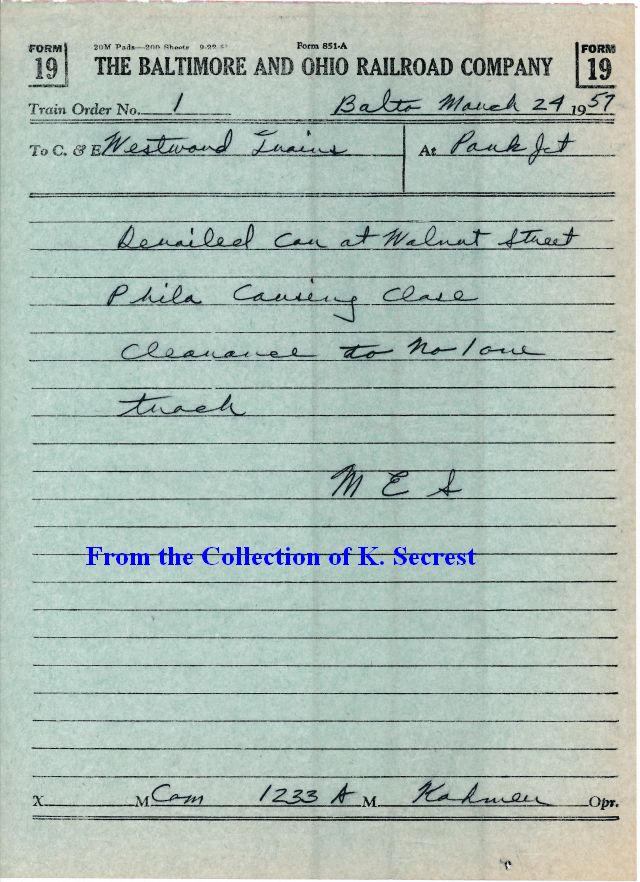 FORM 19
20M Pads—200 Sheets 9-22-5
Form 851-A
FORM 19
THE BALTIMORE AND OHIO RAILROAD COMPANY
Train Order No. 1 Balto March 24 1957
To C. & E. Westward Trains At Park Jct
Derailed Car at Walnut Street
Phila Causing Close
Clearance to No 1 one
track
M E S
From the Collection of K. Secrest
X M Com 1233 A M Opr.